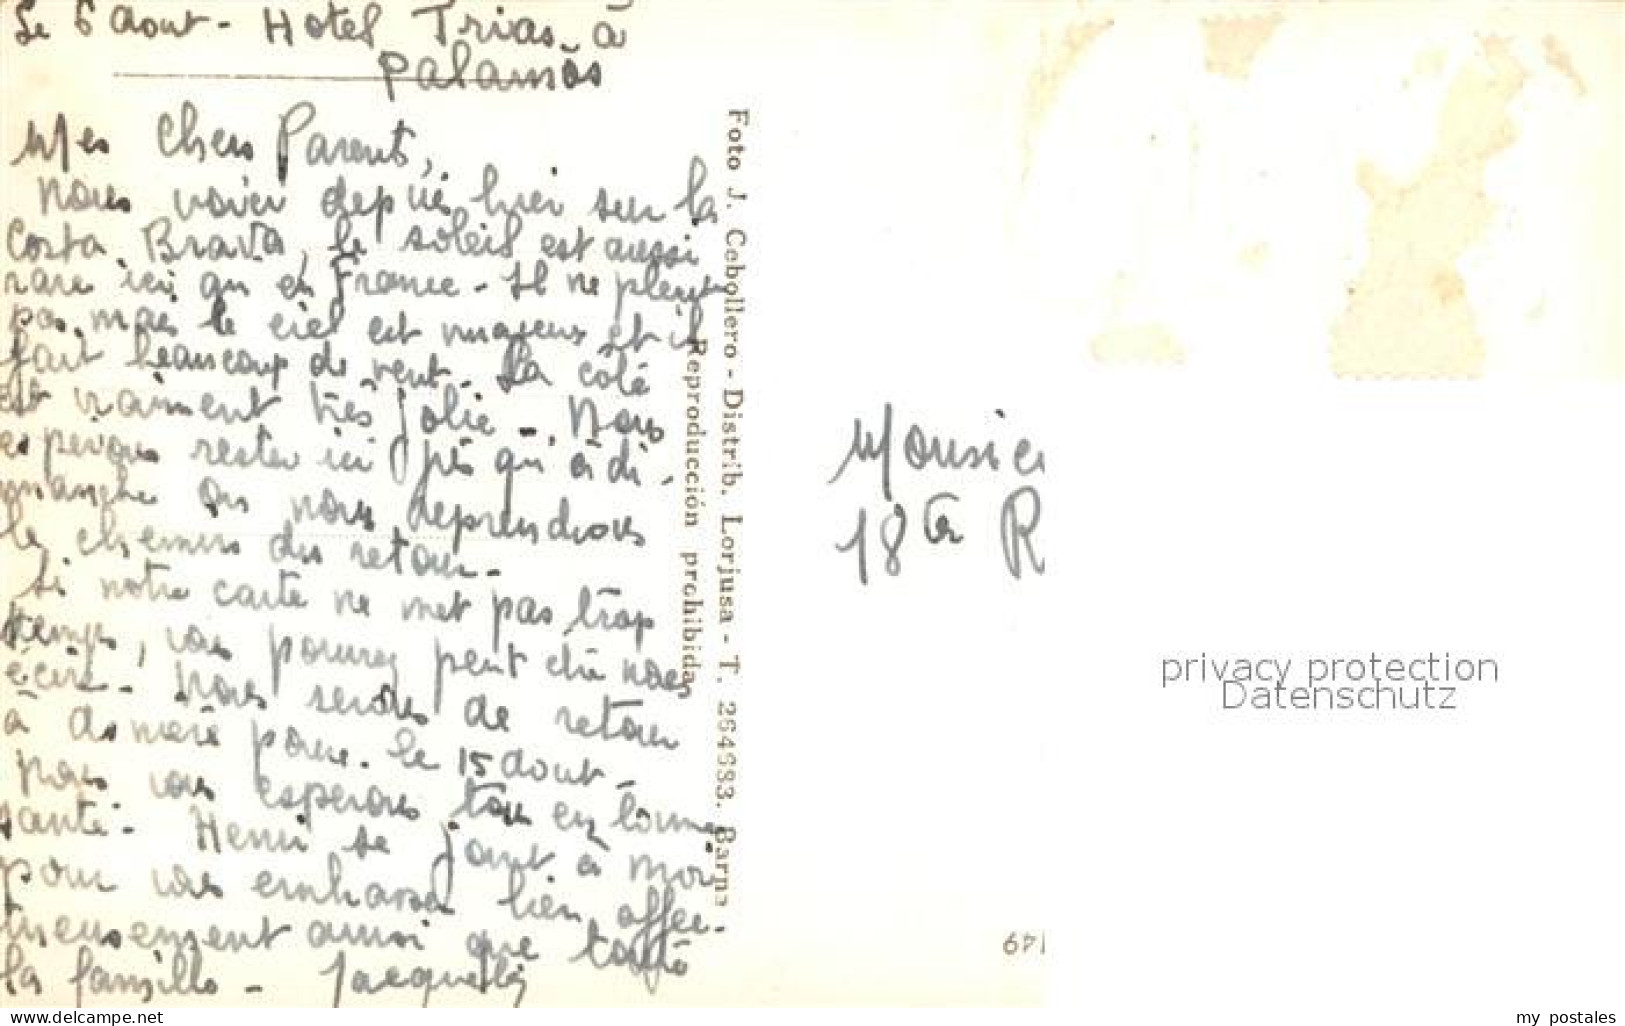 Le 6 Aout - Hotel Trias à
Palamos
Mes Chers Parents,
Nous voici depuis hier sur la
Costa Brava, le soleil est aussi
rare ici qu en France - Il ne pleut
pas mais le ciel est nuageux et il
fait beaucoup de vent - La côte
est vraiment très jolie - Nous
esperons rester ici jusqu'à di-
manche où nous reprendrons
le chemin du retour -
Si notre carte ne met pas trop
temps, vous pourrez peut être nous
écrire - Nous serons de retour
à pour le 15 Aout -
Nous vous esperons tous en bonne
santé - Henri se joint à moi
pour vous embrasser bien affec-
tueusement ainsi que toute
la famille - Jacqueline
Foto J. Cebollero - Distrib. Lorjusa - T. 264683. Barna
Reproducción prohibida
18 R
149
privacy protection
Datenschutz
www.delcampe.net
my_postales